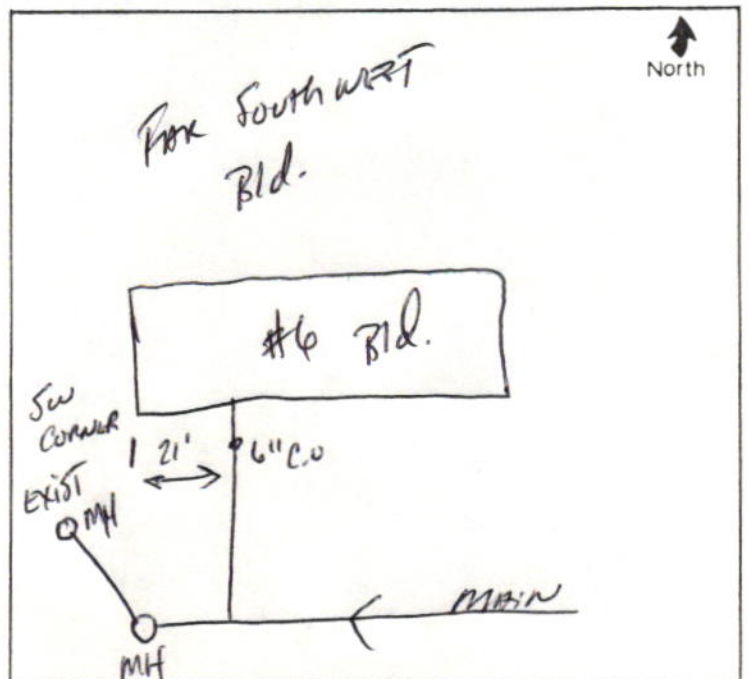 North
Far Southwest
Bld.
#6 Bld.
SW
Corner
21'
6" C.O
EXIST
MH
MAIN
MH